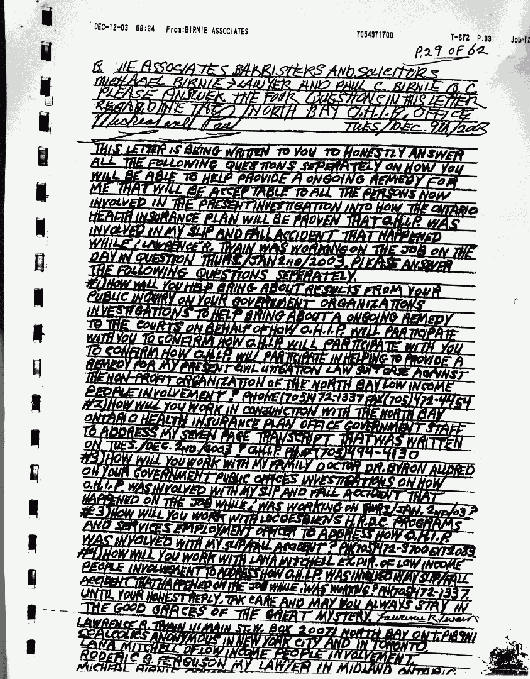 DEC-12-03 08:04 From:BIRNIE ASSOCIATES 7054971700 T-672 P.
P.29 OF 62
ASSOCIATES BARRISTERS AND SOLICITORS
MICHAEL BIRNIE > LAWYER AND PAUL C. BIRNIE Q.C.
PLEASE ANSWER THE FOUR QUESTIONS IN THIS LETTER
REGARDING THE NORTH BAY O.H.I.P. OFFICE
TUES/DEC. 9th/2003
THIS LETTER IS BEING WRITTEN TO YOU TO HONESTLY ANSWER
ALL THE FOLLOWING QUESTIONS SEPERATELY ON HOW YOU
WILL BE ABLE TO HELP PROVIDE A ONGOING REMEDY FOR
ME THAT WILL BE ACCEPTABLE TO ALL THE PERSONS NOW
INVOLVED IN THE PRESENT INVESTIGATION INTO HOW THE ONTARIO
HEALTH INSURANCE PLAN WILL BE PROVEN THAT O.H.I.P. WAS
INVOLVED IN MY SLIP AND FALL ACCIDENT THAT HAPPENED
WHILE LAWRENCE R. TWAIN WAS WORKING ON THE JOB ON THE
DAY IN QUESTION THURS/JAN 2nd/2003 PLEASE ANSWER
THE FOLLOWING QUESTIONS SEPERATELY.
#1) HOW WILL YOU HELP BRING ABOUT RESULTS FROM YOUR
PUBLIC INQUIRY ON YOUR GOVERNMENT ORGANIZATIONS
INVESTIGATIONS TO HELP BRING ABOUT A ONGOING REMEDY
TO THE COURTS ON BEHALF OF HOW O.H.I.P. WILL PARTICIPATE
WITH YOU TO CONFIRM HOW O.H.I.P. WILL PARTICIPATE WITH YOU
TO CONFIRM HOW O.H.I.P. WILL PARTICIPATE IN HELPING TO PROVIDE A
REMEDY FOR MY PRESENT CIVIL LITIGATION LAW SUIT CASE AGAINST
THE NON-PROFIT ORGANIZATION OF THE NORTH BAY LOW INCOME
PEOPLE INVOLVEMENT ? PHONE (705) 472-1337 FAX (705) 472-4454
#2) HOW WILL YOU WORK IN CONJUNCTION WITH THE NORTH BAY
ONTARIO HEALTH INSURANCE PLAN OFFICE GOVERNMENT STAFF
TO ADDRESS MY SEVEN PAGE TRANSCRIPT THAT WAS WRITTEN
ON TUES./DEC. 2nd/2003 ? O.H.I.P. PH.# (705) 494-4130
#3) HOW WILL YOU WORK WITH MY FAMILY DOCTOR DR. BYRON ALDRED
ON YOUR GOVERNMENT PUBLIC OFFICES INVESTIGATIONS ON HOW
O.H.I.P. WAS INVOLVED WITH MY SLIP AND FALL ACCIDENT THAT
HAPPENED ON THE JOB WHILE I WAS WORKING ON THURS/JAN. 2nd/03 ?
#3) HOW WILL YOU WORK WITH H.R.D.C. PROGRAMS
AND SERVICES EMPLOYMENT OFFICER TO ADDRESS HOW O.H.I.P.
WAS INVOLVED WITH MY SLIP/FALL ACCIDENT ?
#4) HOW WILL YOU WORK WITH LANA MITCHELL EX. DIR. OF LOW INCOME
PEOPLE INVOLVEMENT TO ADDRESS HOW O.H.I.P. WAS INVOLVED W/ MY SLIP/FALL
ACCIDENT THAT HAPPENED ON THE JOB WHILE I WAS WORKING ? PH (705) 472-1337
UNTIL YOUR HONEST REPLY. TAKE CARE AND MAY YOU ALWAYS STAY IN
THE GOOD GRACES OF THE GREAT MYSTERY. Lawrence R. Twain
LAWRENCE R. TWAIN MAIN ST. W. BOX 20071 NORTH BAY ONT. P1B9N1
ANONYMOUS IN NEW YORK CITY AND IN TORONTO
LANA MITCHELL OF LOW INCOME PEOPLE INVOLVEMENT.
RODERIC G. FERGUSON MY LAWYER IN MIDLAND ONTARIO